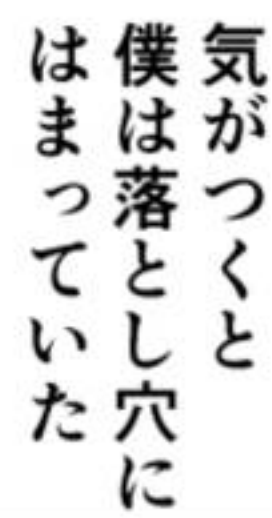 気がつくと
僕は落とし穴に
はまっていた